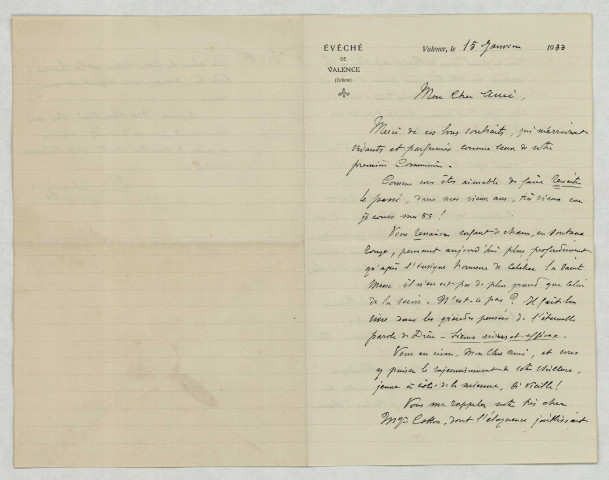 ÉVÊCHÉ
DE
VALENCE
(Drôme)
Valence, le 15 Janvier 1933
Mon Cher Ami,
Merci de vos bons souhaits, qui m'arrivent
vivants et parfumés comme ceux de votre
première Communion.
Comme vous êtes aimable de faire
le passé, dans mes vieux ans, très vieux car
je cours mes 83 !
Vous enfant de chœur, en soutane
rouge, pensant aujourd'hui plus profondément
qu'après l'insigne honneur de célébrer la Sainte
Messe il n'en est pas de plus grand que celui
de la servir. N'est-ce pas ? Il fait bon
vivre dans les grandes pensées de l'éternelle
parole de Dieu - semo vivus et efficax.
Vous en vivez, Mon Cher Ami, et vous
y puisez le rajeunissement de votre vieillesse,
jeune à côté de la mienne, si vieille !
Vous me rappelez notre très cher
Mgr Cotton, dont l'éloquence jaillissant